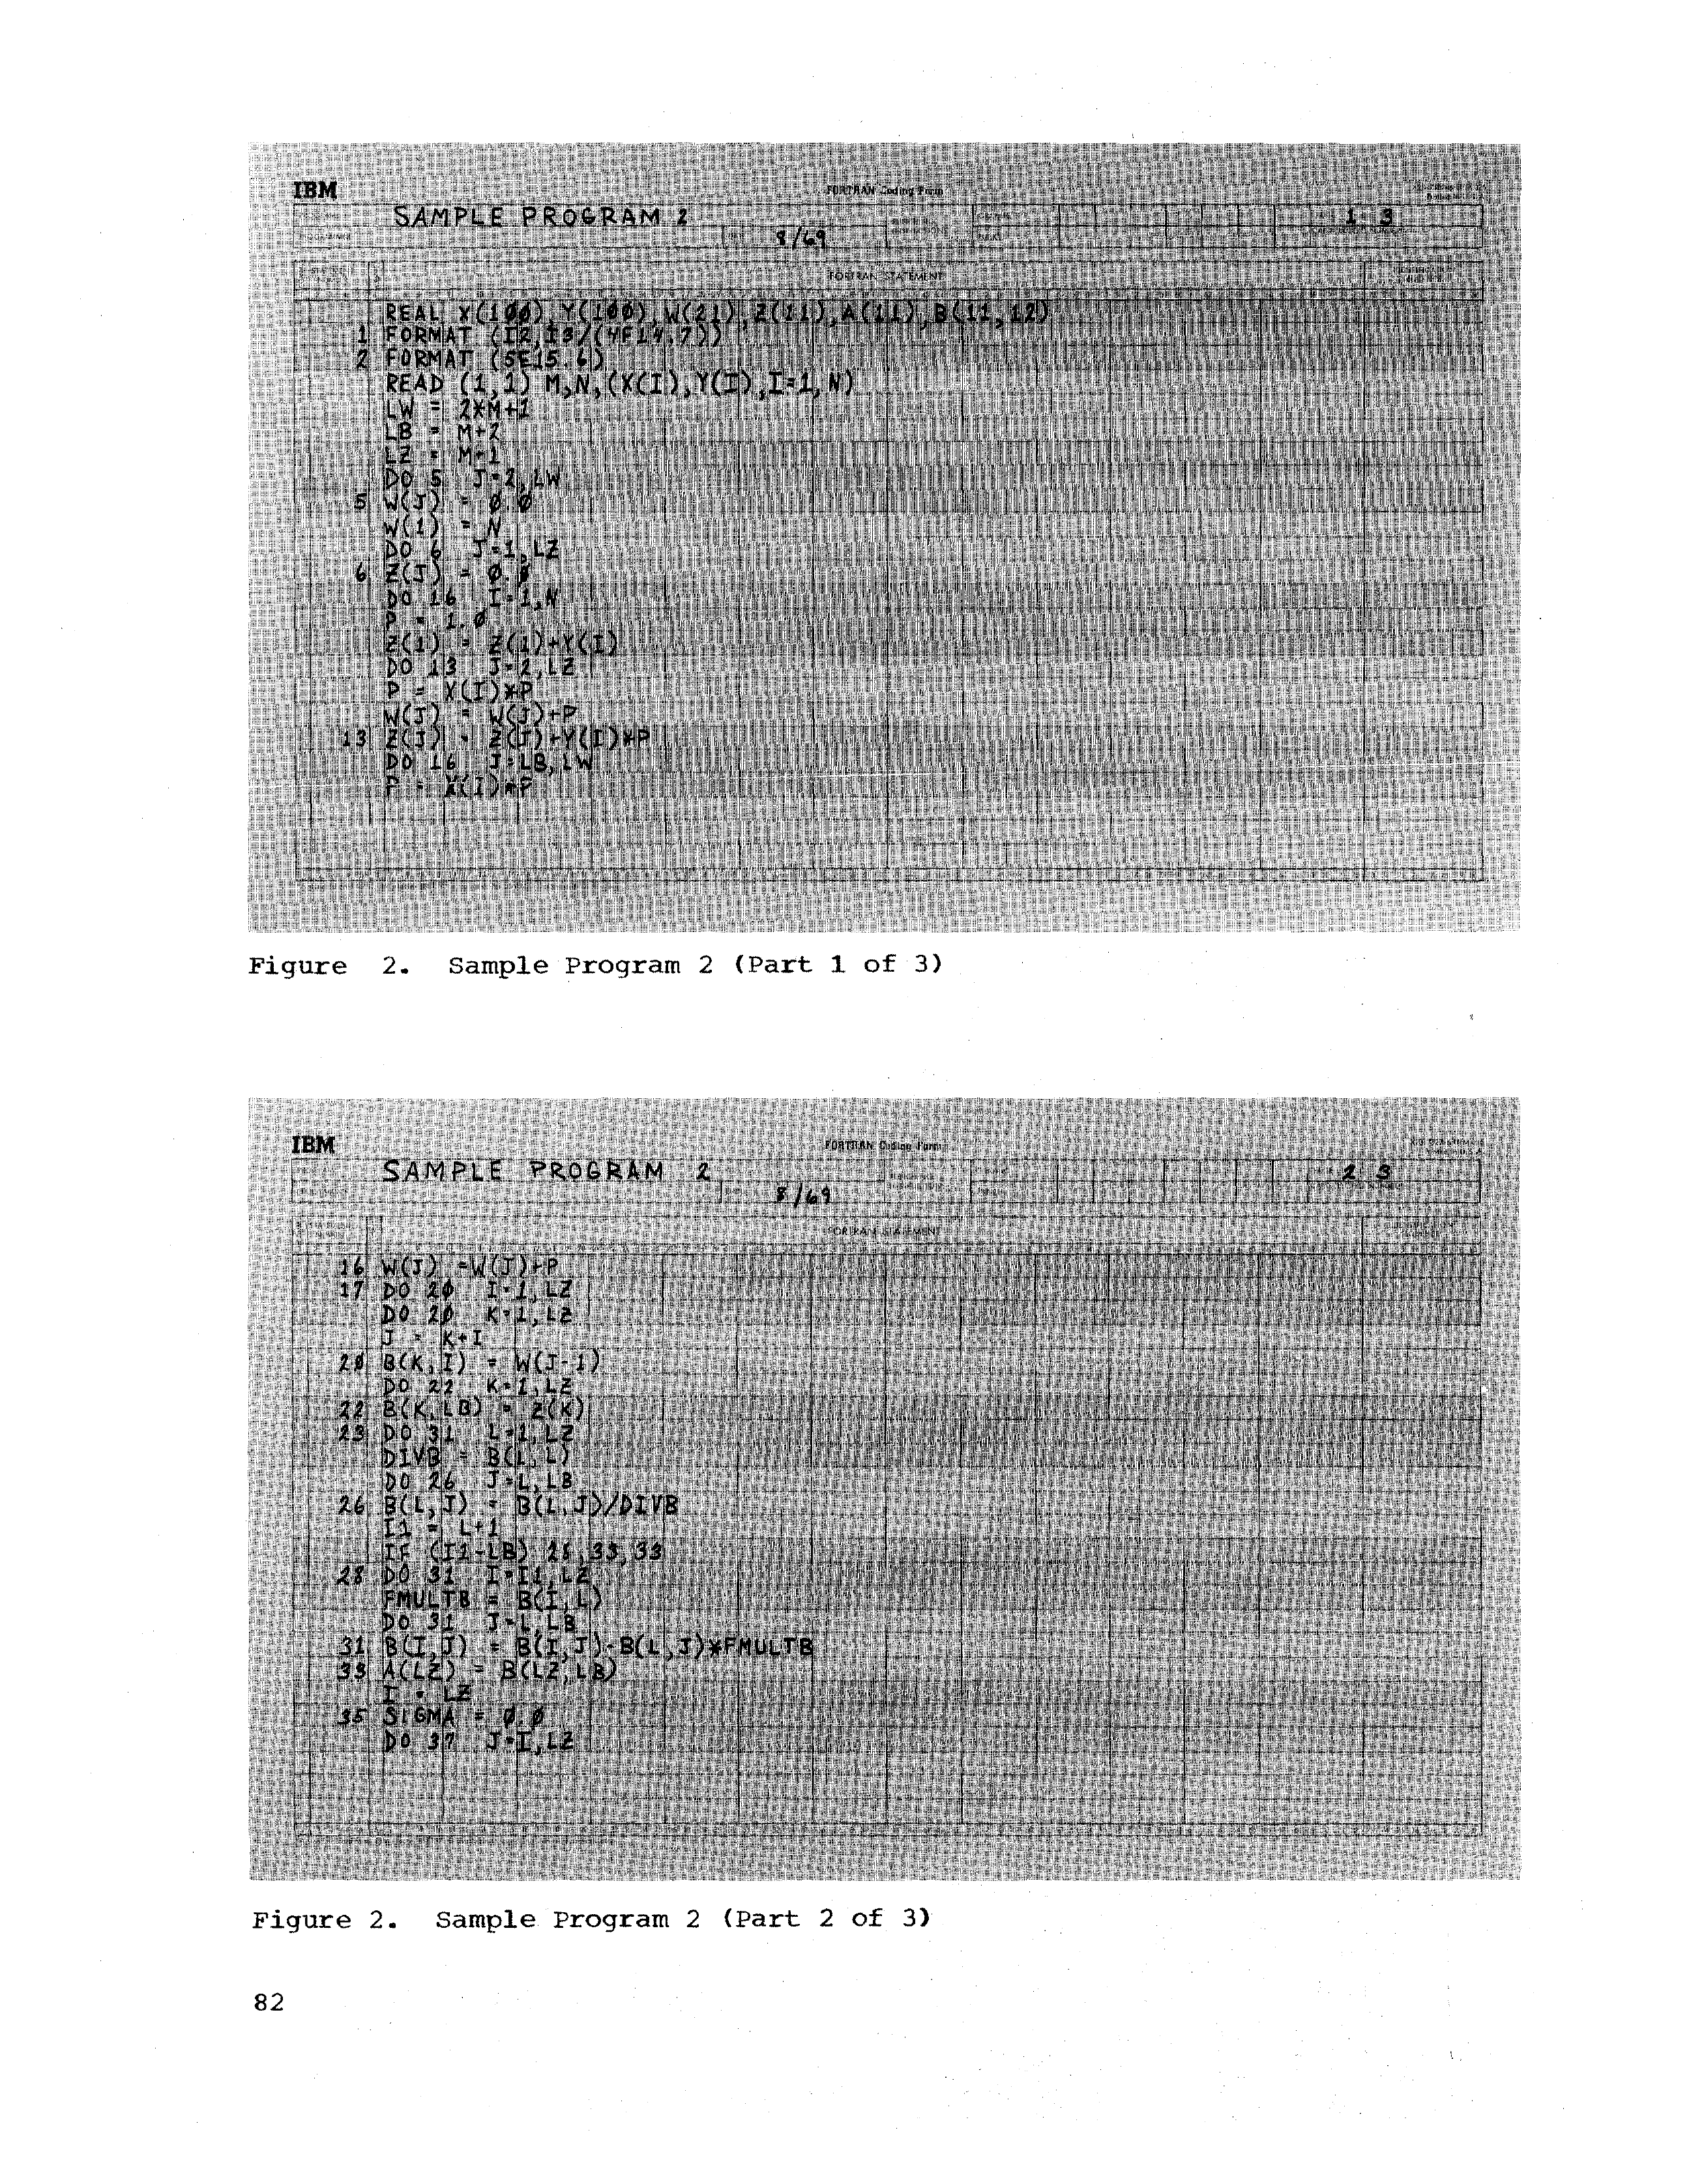 IBM
FORTRAN Coding Form
SAMPLE PROGRAM 2
1 3
8/69
FORTRAN STATEMENT
REAL X(100),Y(100),W(21),Z(11),A(11),B(11,12)
1 FORMAT (I2,I3/(4F14.7))
2 FORMAT (5E15.6)
READ (1,1) M,N,(X(I),Y(I),I=1,N)
LW = 2*M+1
LB = M+2
LZ = M+1
DO 5 J=2,LW
5 W(J) = 0.0
W(1) = N
DO 6 J=1,LZ
6 Z(J) = 0.0
DO 16 I=1,N
P = 1.0
Z(1) = Z(1)+Y(I)
DO 13 J=2,LZ
P = X(I)*P
W(J) = W(J)+P
13 Z(J) = Z(J)+Y(I)*P
DO 16 J=LB,LW
P = X(I)*P
Figure 2. Sample Program 2 (Part 1 of 3)
IBM
FORTRAN Coding Form
SAMPLE PROGRAM 2
2 3
8/69
FORTRAN STATEMENT
16 W(J) =W(J)+P
17 DO 20 I=1,LZ
DO 20 K=1,LZ
J = K+I
20 B(K,I) = W(J-1)
DO 22 K=1,LZ
22 B(K,LB) = Z(K)
23 DO 31 L=1,LZ
DIVB = B(L,L)
DO 26 J=L,LB
26 B(L,J) = B(L,J)/DIVB
I1 = L+1
IF (I1-LB) 28,33,33
28 DO 31 I=I1,LZ
FMULTB = B(I,L)
DO 31 J=L,LB
31 B(I,J) = B(I,J)-B(L,J)*FMULTB
33 A(LZ) = B(LZ,LB)
I = LZ
35 SIGMA = 0.0
DO 37 J=I,LZ
Figure 2. Sample Program 2 (Part 2 of 3)
82